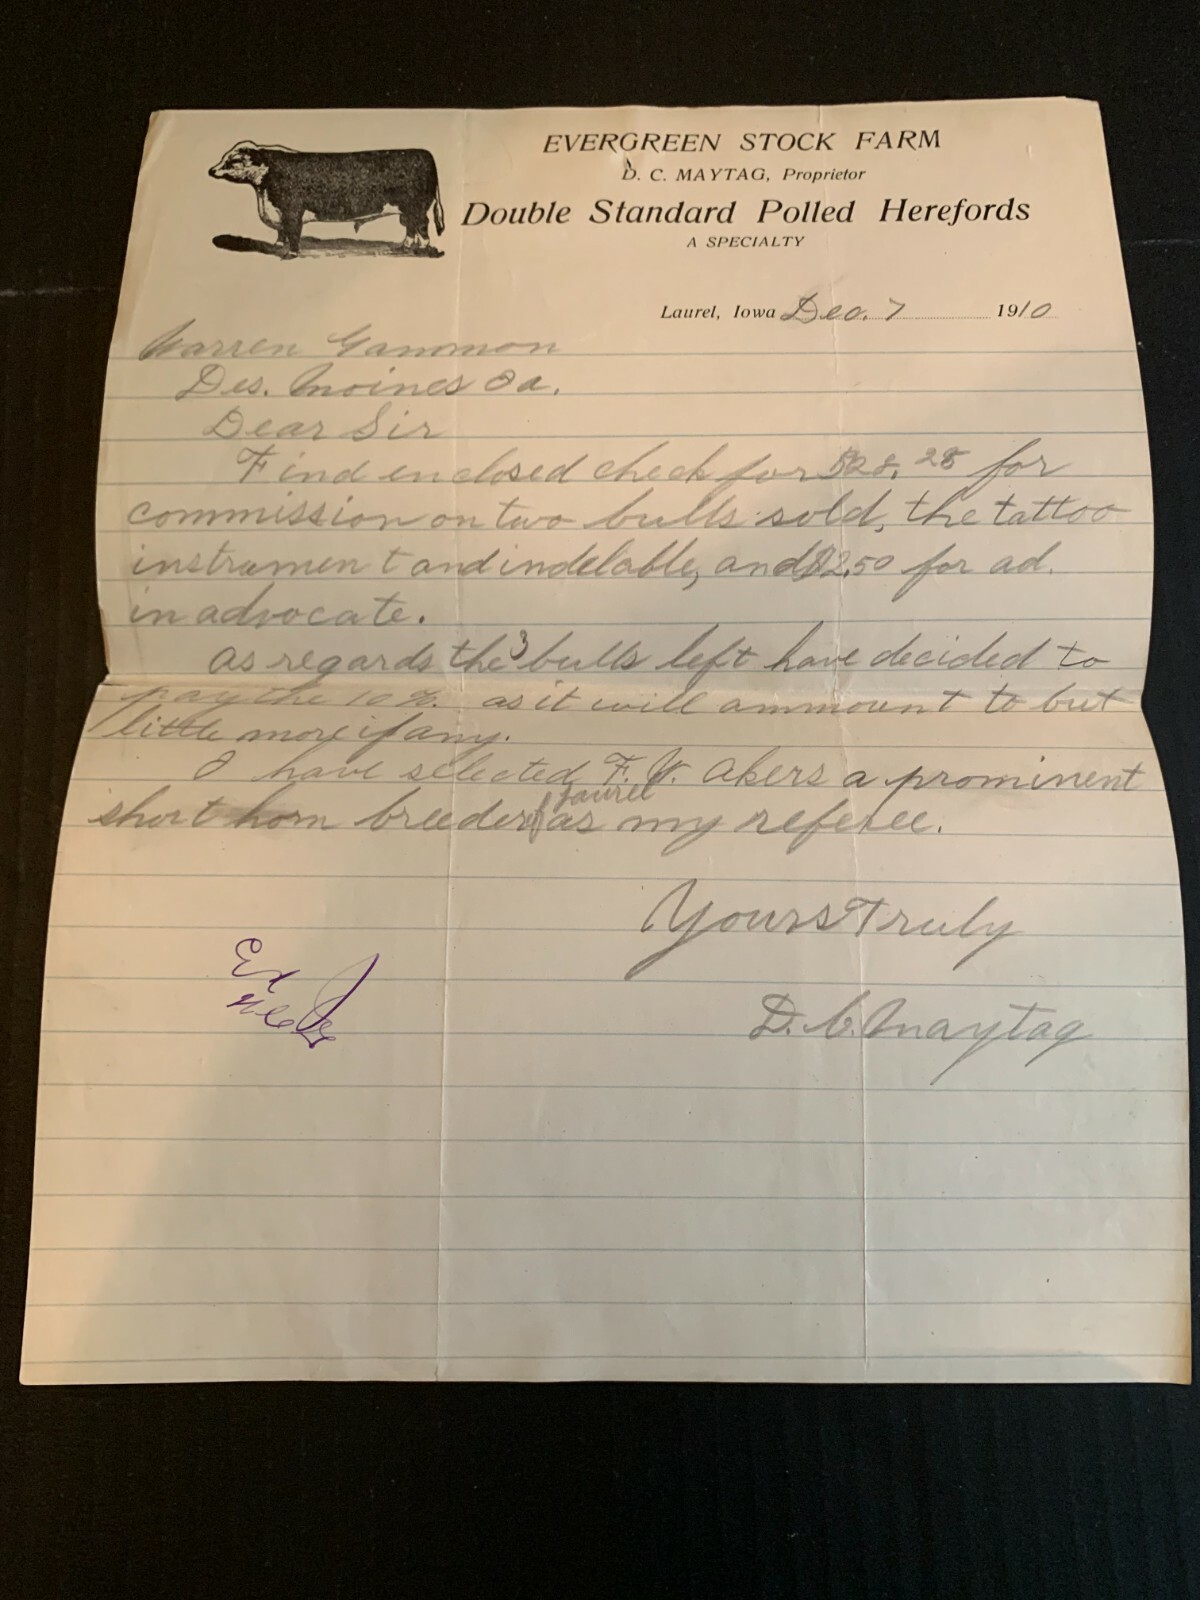 EVERGREEN STOCK FARM
D. C. MAYTAG, Proprietor
Double Standard Polled Herefords
A SPECIALTY
Laurel, Iowa Dec. 7 1910
Warren Gammon
Des. Moines Ia.
Dear Sir
Find enclosed check for $28.28 for
commission on two bulls sold, the tattoo
instrument and indelable, and $12.50 for ad.
in advocate.
As regards the 3 bulls left have decided to
pay the 10%. as it will ammount to but
little more if any.
I have selected F. W. Akers a prominent
short horn breeder of Laurel as my referee.
Yours Truly
D. C. Maytag
Ex